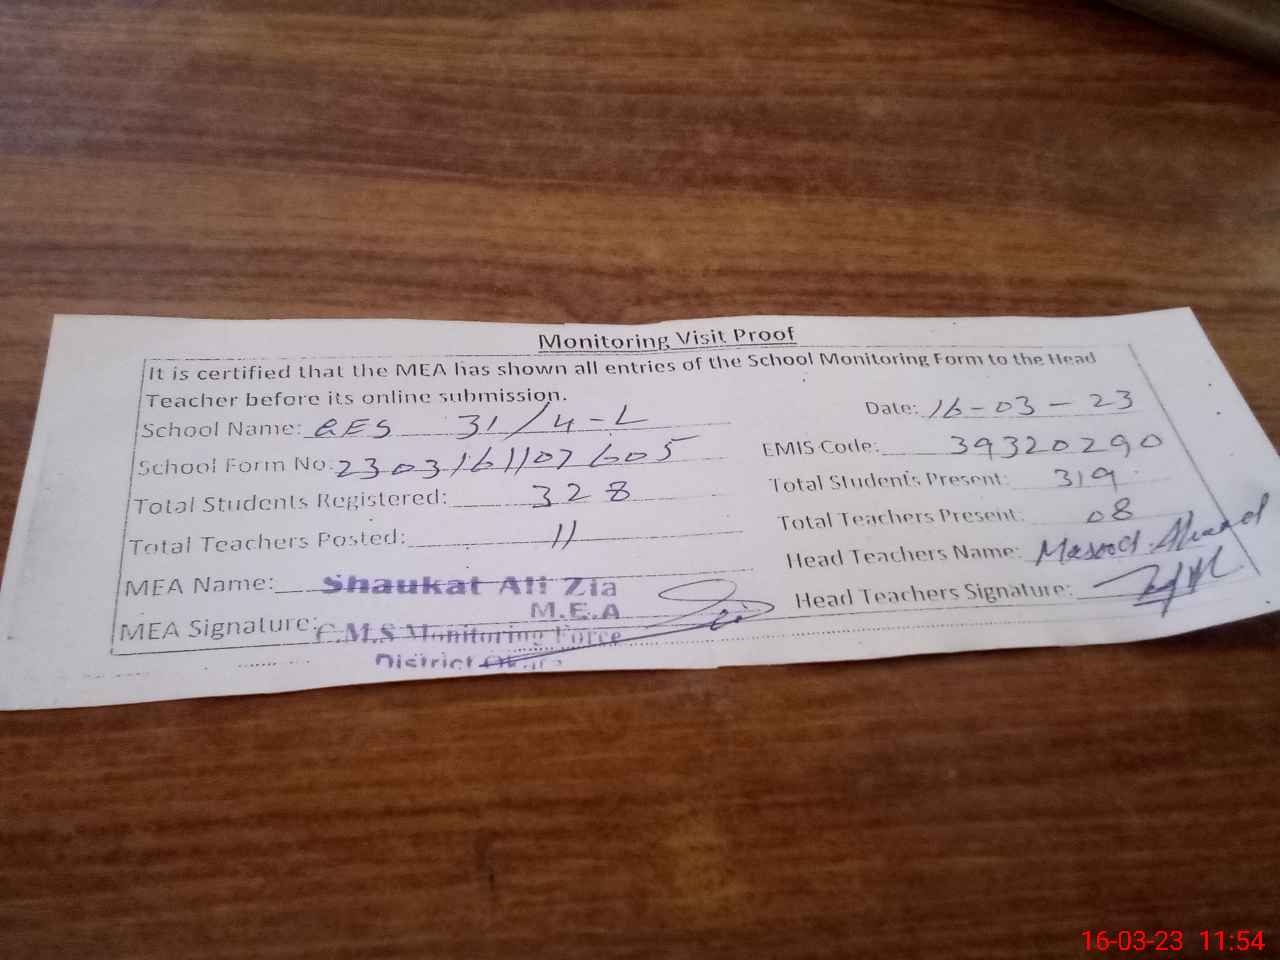 Monitoring Visit Proof
It is certified that the MEA has shown all entries of the School Monitoring Form to the Head
Teacher before its online submission.
Date: 16-03-23
School Name: GES 31/4-L
EMIS Code: 39320290
School Form No: 2303161107605
Total Students Present: 319
Total Students Registered: 328
Total Teachers Present: 08
Total Teachers Posted: 11
Head Teachers Name: Masood Ahmed
MEA Name: Shaukat Ali Zia
M.E.A
Head Teachers Signature:
MEA Signature: C.M.S Monitoring Force
District
16-03-23 11:54